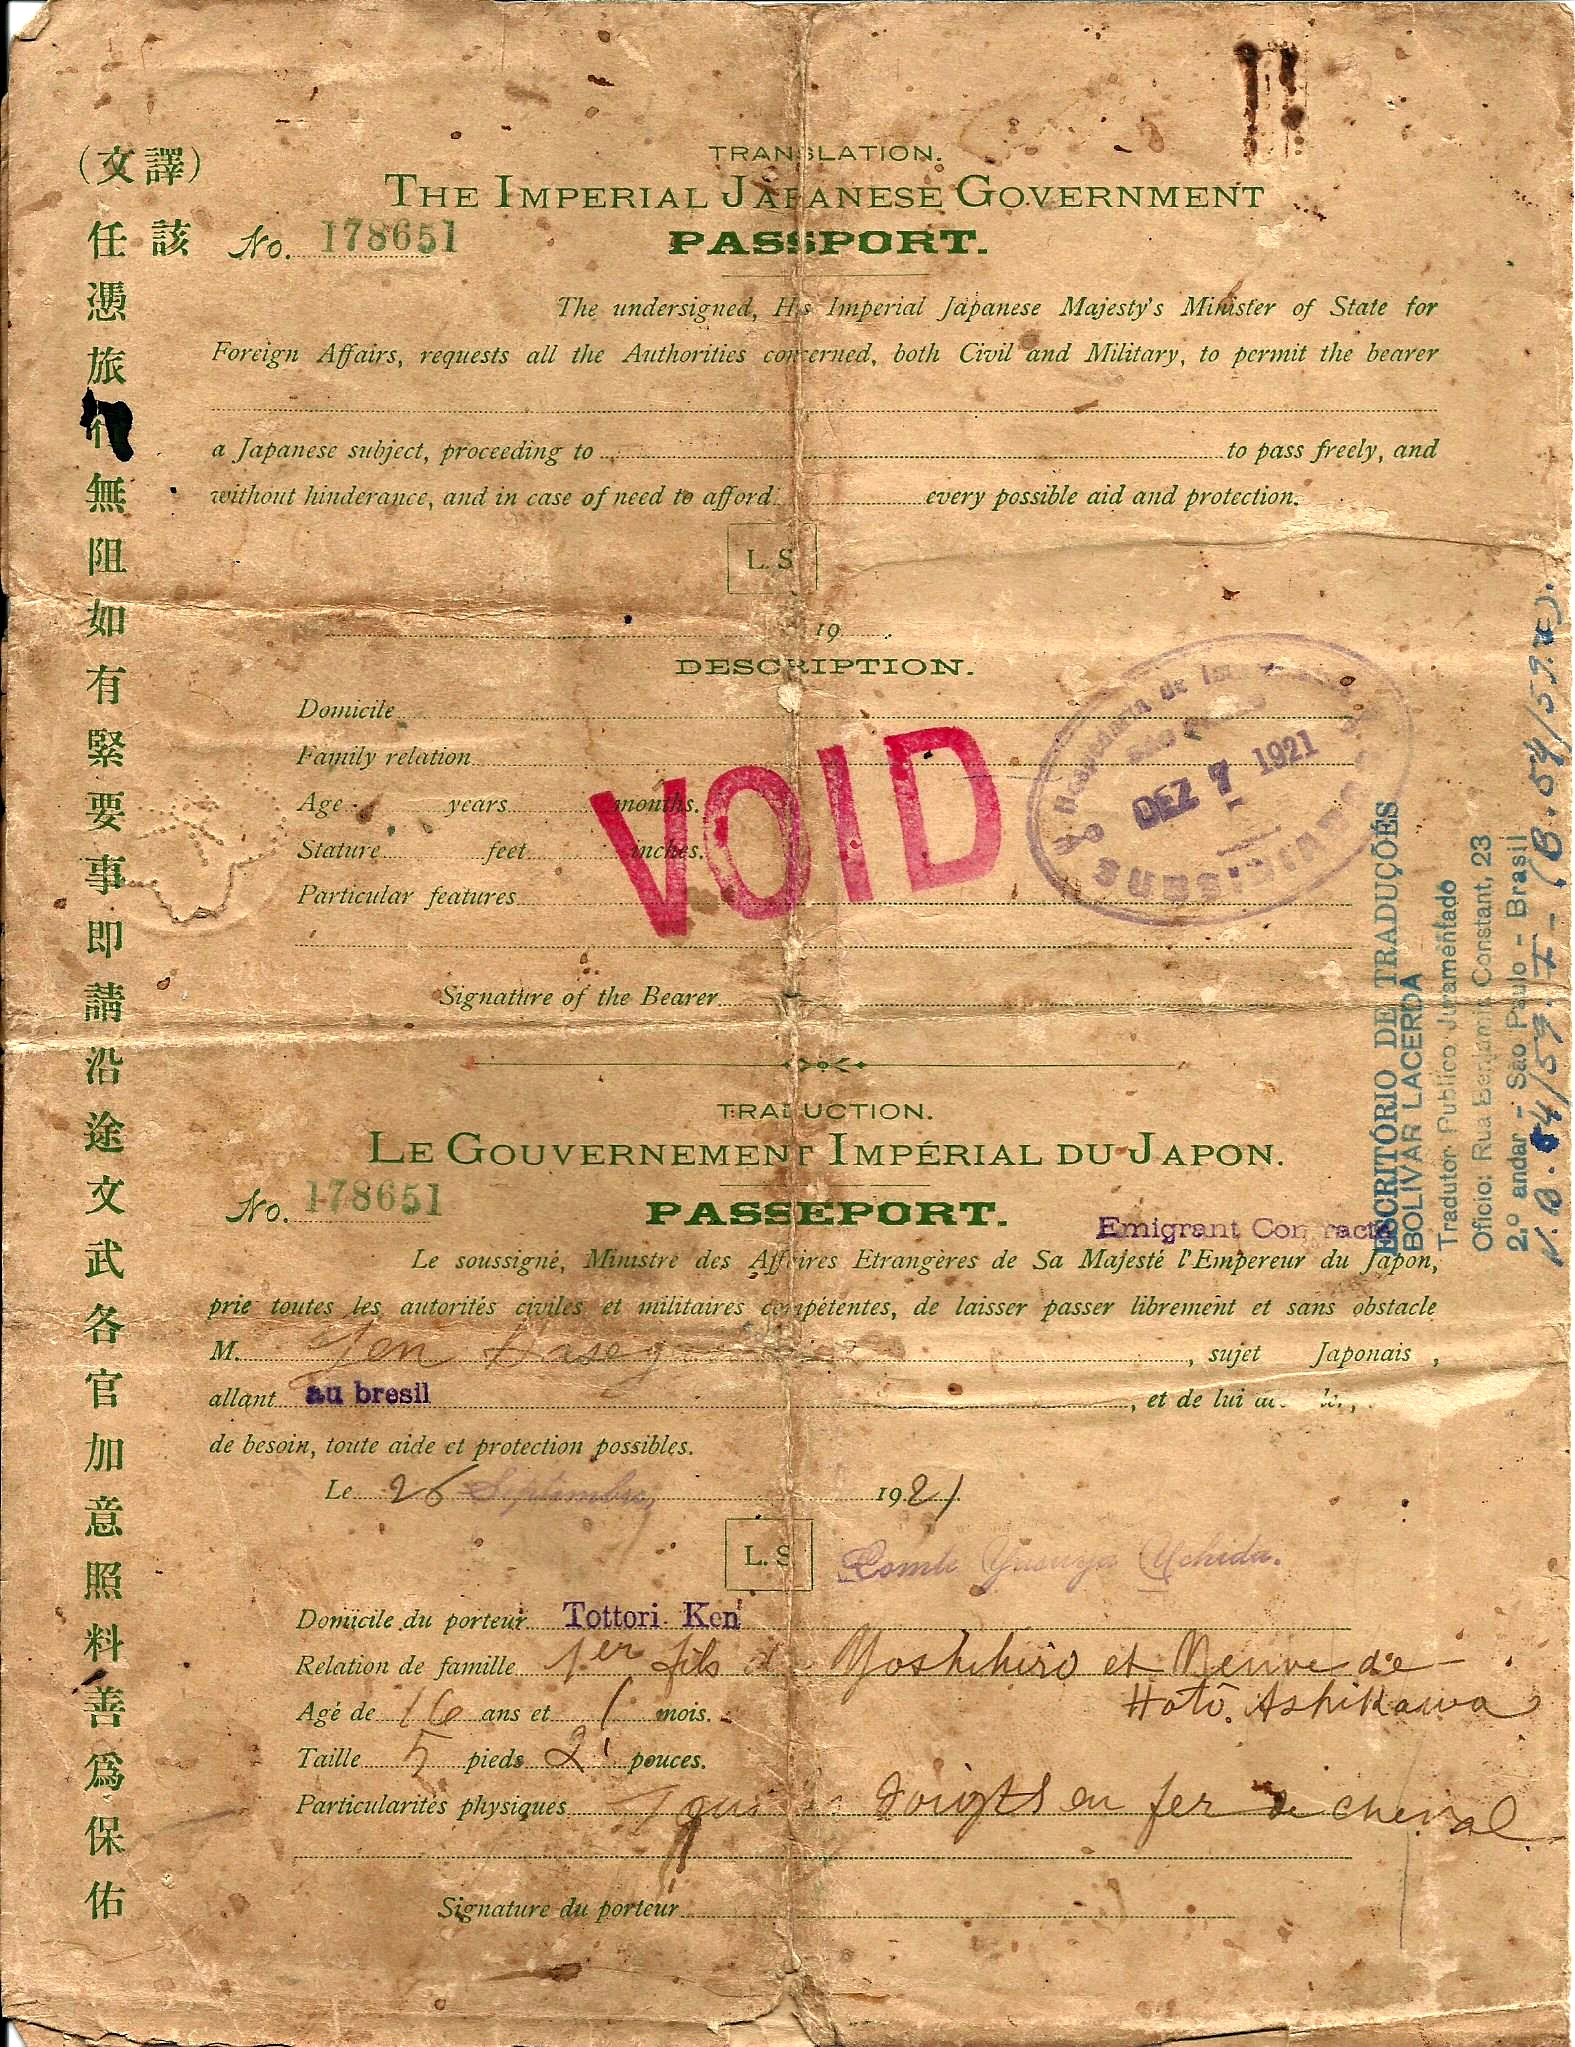 (譯文)
該
任憑旅行無阻如有緊要事即請沿途文武各官加意照料善爲保佑
TRANSLATION.
THE IMPERIAL JAPANESE GOVERNMENT
No. 178651
PASSPORT.
The undersigned, His Imperial Japanese Majesty's Minister of State for
Foreign Affairs, requests all the Authorities concerned, both Civil and Military, to permit the bearer
a Japanese subject, proceeding to to pass freely, and
without hinderance, and in case of need to afford every possible aid and protection.
L. S
19 .
DESCRIPTION.
Domicile
Family relation
Age years months.
Stature feet inches.
Particular features
Signature of the Bearer
VOID
Hospedaria de
SÃO PAULO
DEZ 7 1921
TRADUCTION.
LE GOUVERNEMENT IMPÉRIAL DU JAPON.
No. 178651
PASSEPORT.
Emigrant Contracté
Le soussigné, Ministre des Affaires Etrangères de Sa Majesté l'Empereur du Japon,
prie toutes les autorités civiles et militaires compétentes, de laisser passer librement et sans obstacle
M. , sujet Japonais ,
allant au bresil , et de lui
de besoin, toute aide et protection possibles.
Le 26 Septembre, 1921.
L. S
Comte Yasuya Uchida.
Domicile du porteur Tottori Ken
Relation de famille 1er fils de Yoshihiro et Neuve de
Hotô. Ashikawa
Agé de 16 ans et 1 mois.
Taille 5 pieds 2 pouces.
Particularités physiques doigts en fer de cheval
Signature du porteur
ESCRITÓRIO DE TRADUÇÕES
BOLÍVAR LACERDA
Tradutor Publíco Juramentado
Oficio: Rua Benjamin Constant, 23
2.º andar - São Paulo - Brasil